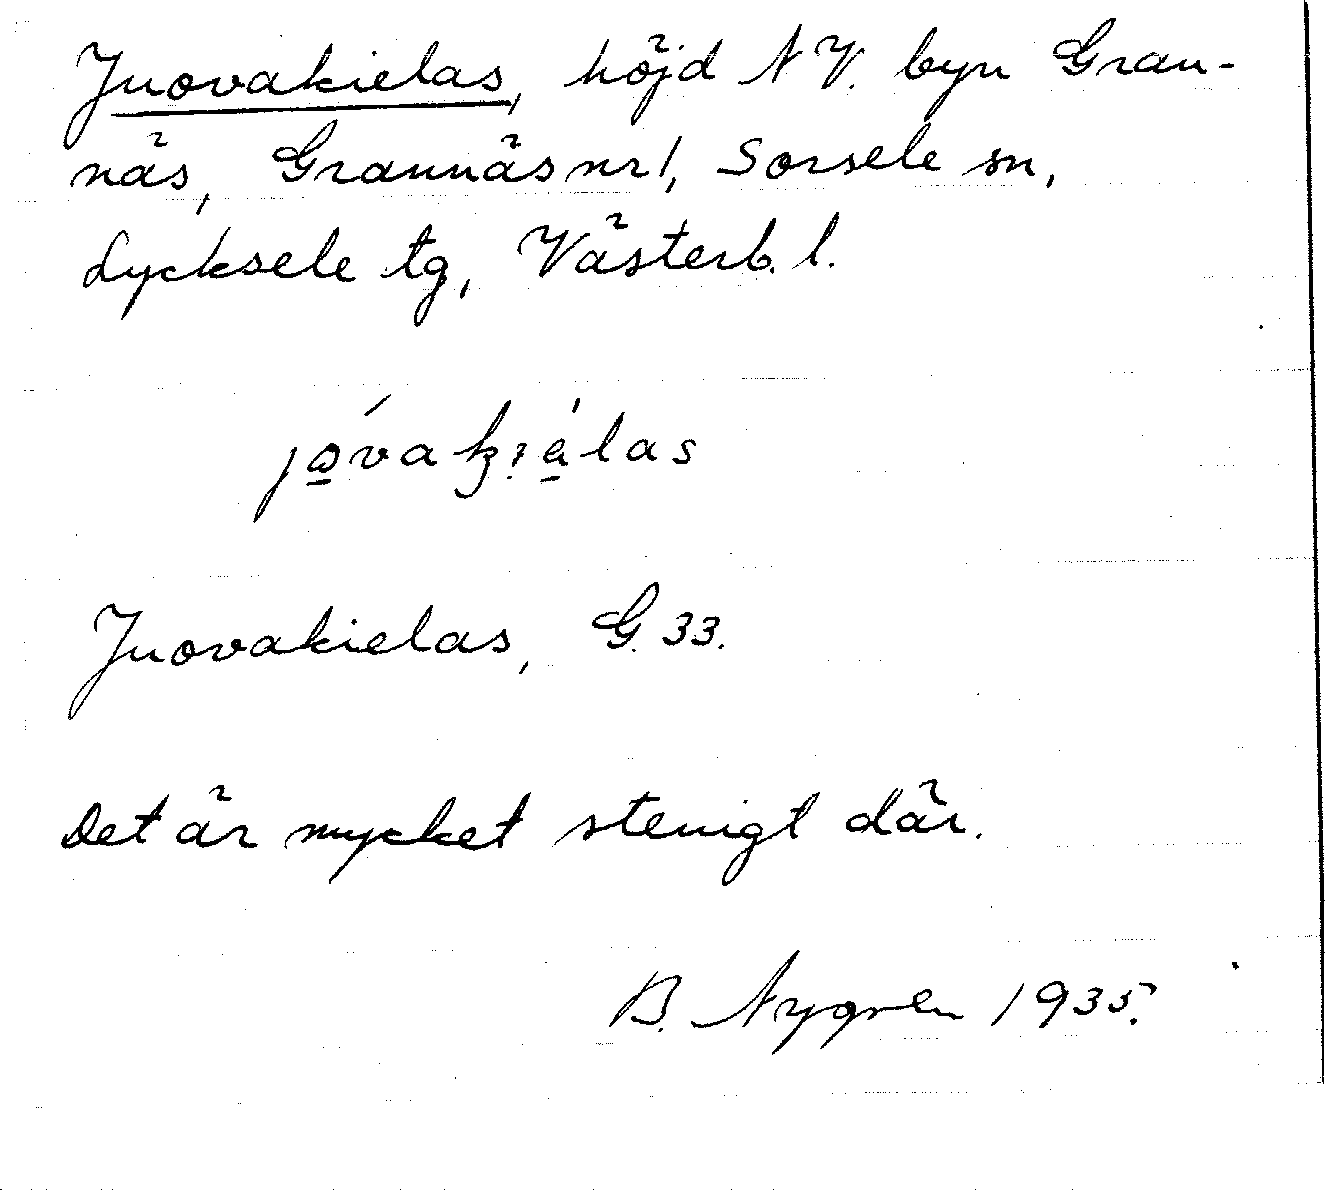 Juovakielas, höjd NV. byn Gran-
näs, Grannäs nr 1, Sorsele sn,
Lycksele tg, Västerb. l.
Juovakielas, G. 33.
Det är mycket stenigt där.
B. Nygren 1935.